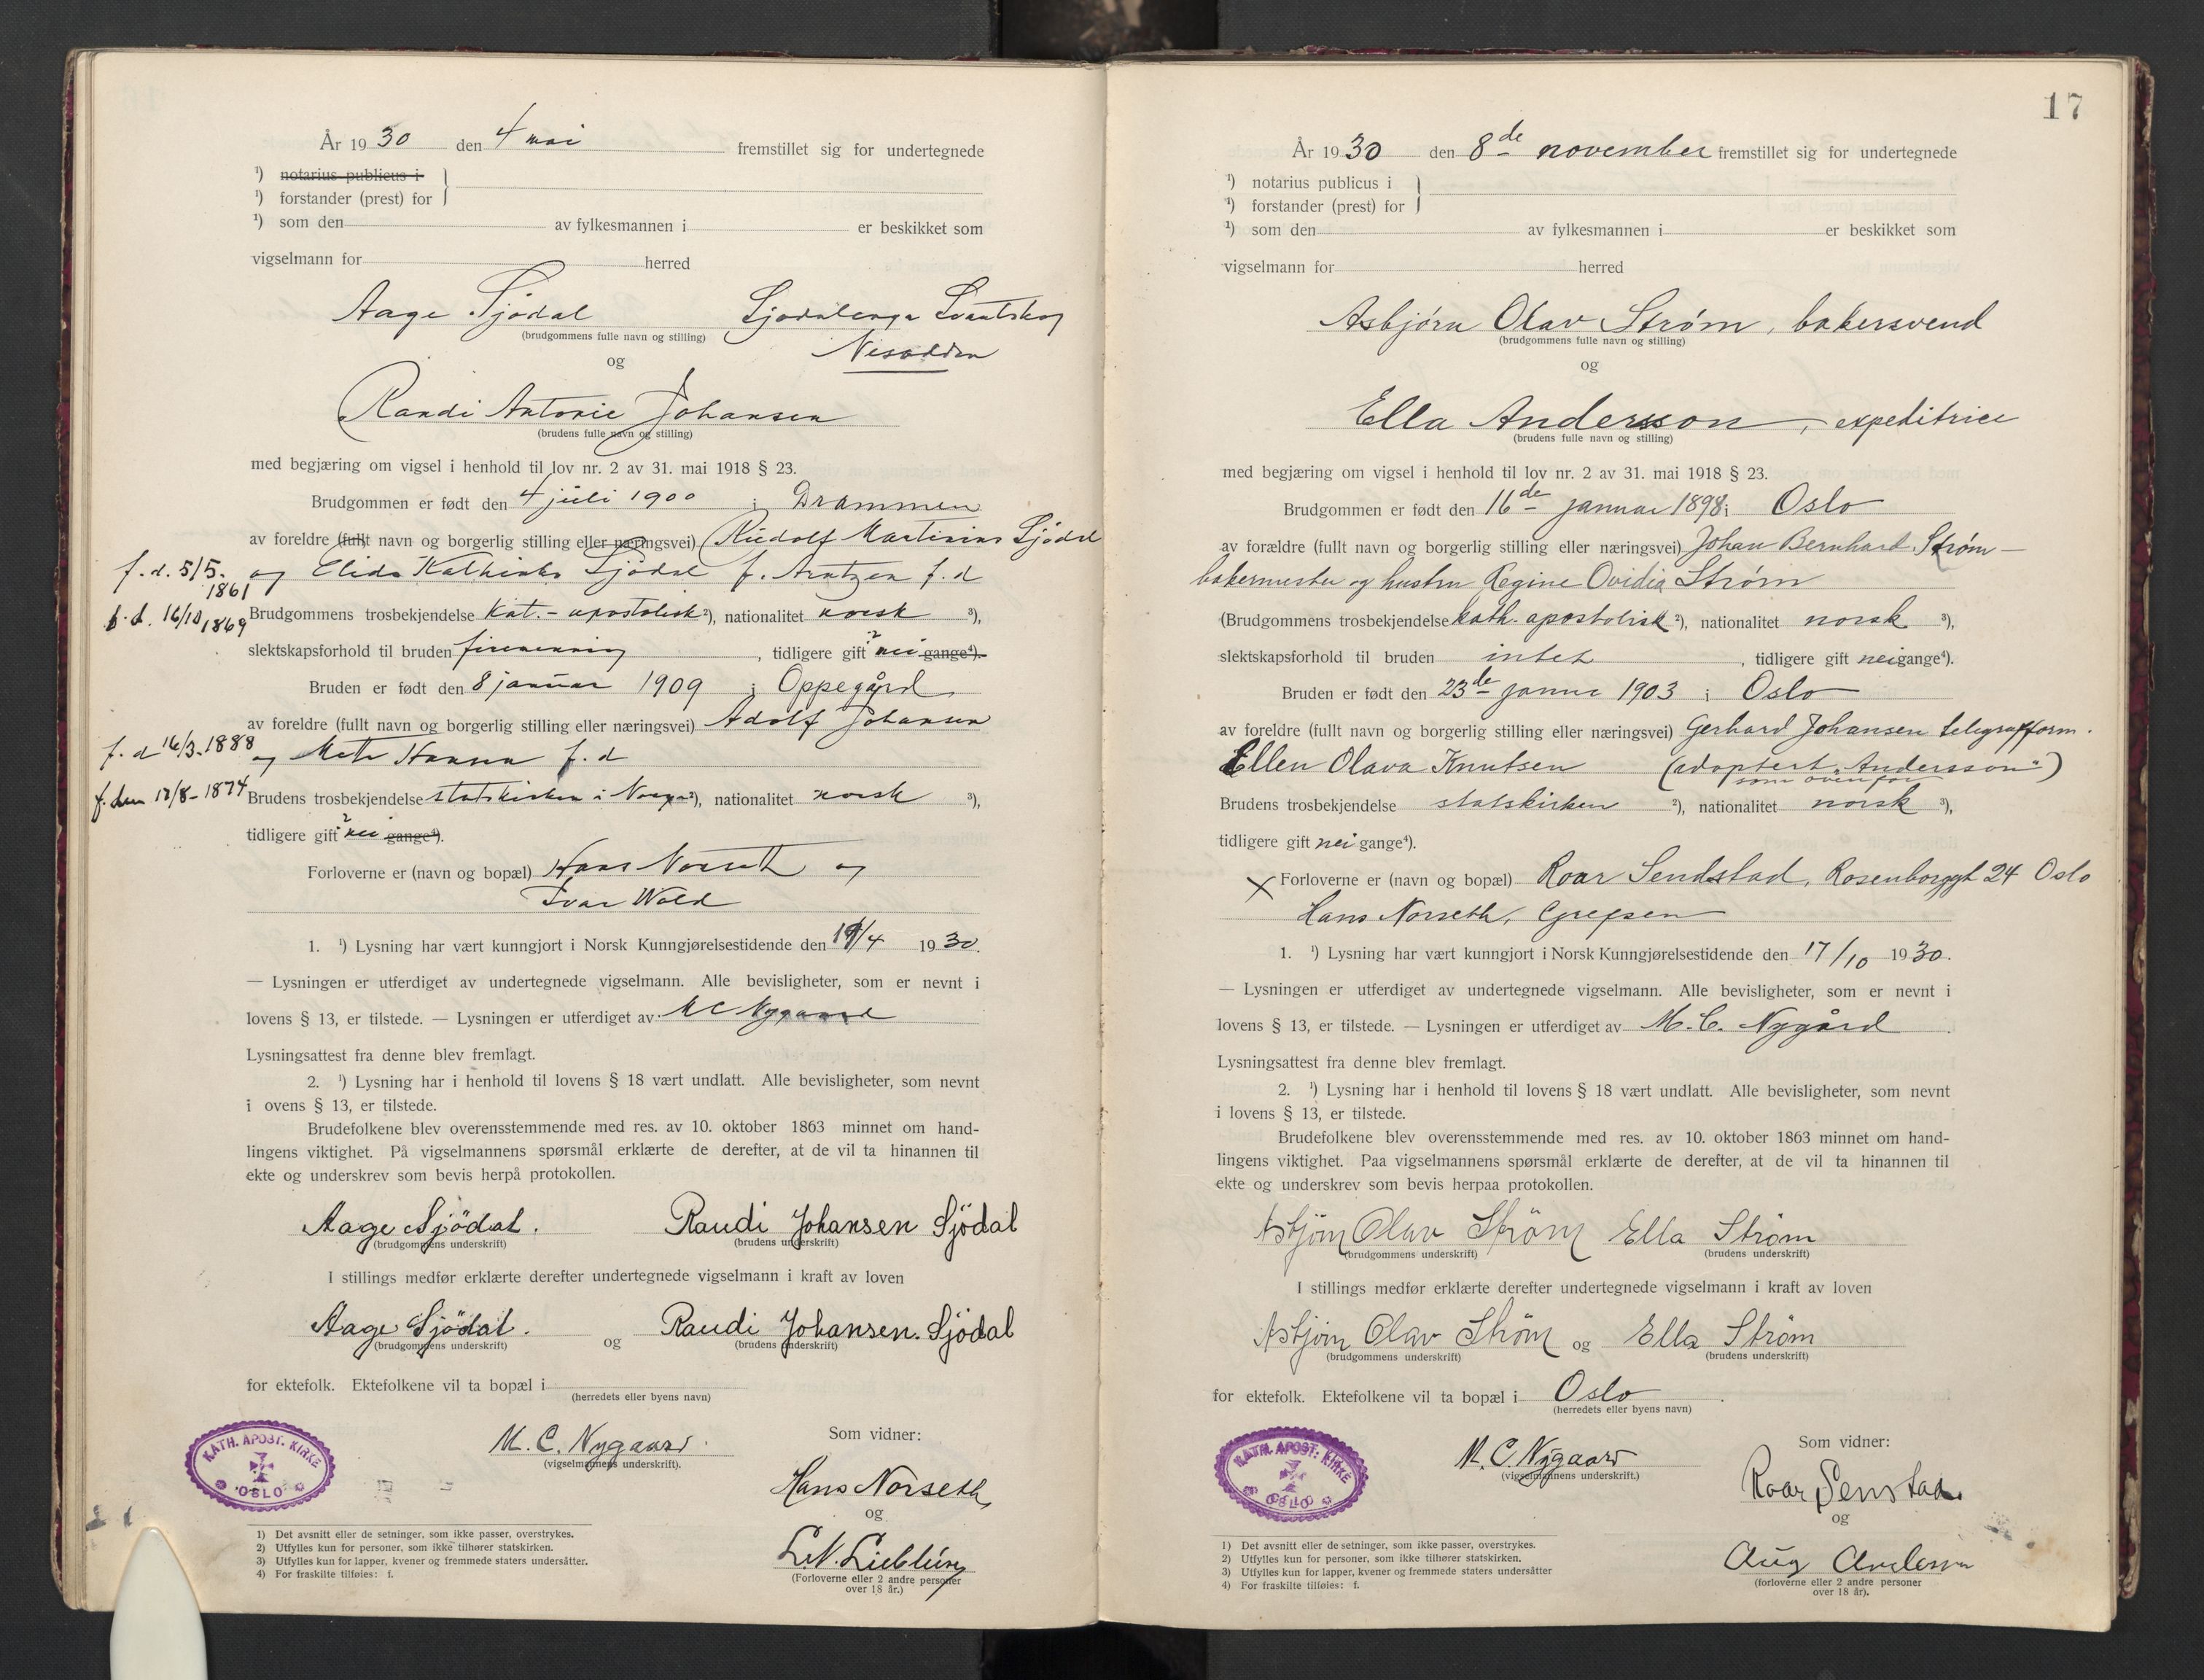 År 1930 den 4 mai fremstillet sig for undertegnede
¹) notarius publicus i
¹) forstander (prest) for
¹) som den av fylkesmannen i er beskikket som
vigselmann for herred
Aage Sjödal Svartskog
(brudgommens fulle navn og stilling) Nesodden
og
Randi Antonie Johansen
(brudens fulle navn og stilling)
med begjæring om vigsel i henhold til lov nr. 2 av 31. mai 1918 § 23.
Brudgommen er født den 4 juli 1900 i Drammen
av foreldre (fullt navn og borgerlig stilling eller næringsvei) Rudolf Martinius Sjödal
f. d. 5/5. og Elida Kathinka Sjödal f. Arntzen f. d
1861
f. d. 16/10 1869 Brudgommens trosbekjendelse Kat. - apostolisk ²), nationalitet norsk ³),
slektskapsforhold til bruden firmenning, tidligere gift ² nei gange⁴).
Bruden er født den 8 januar 1909 i Oppegård
av foreldre (fullt navn og borgerlig stilling eller næringsvei) Adolf Johansen
f. d 16/3-1888 og Hansen f. d
f. den 12/8-1874 Brudens trosbekjendelse statskirken i Norge ²), nationalitet norsk ³),
tidligere gift ² nei gange⁴).
Forloverne er (navn og bopæl) Hans Norseth og
Ivar Wold
1. ¹) Lysning har vært kunngjort i Norsk Kunngjørelsestidende den /4 1930.
— Lysningen er utferdiget av undertegnede vigselmann. Alle bevisligheter, som er nevnt i
lovens § 13, er tilstede. — Lysningen er utferdiget av M C Nygaard
Lysningsattest fra denne blev fremlagt.
2. ¹) Lysning har i henhold til lovens § 18 vært undlatt. Alle bevisligheter, som nevnt
i ovens § 13, er tilstede.
Brudefolkene blev overensstemmende med res. av 10. oktober 1863 minnet om hand-
lingens viktighet. På vigselmannens spørsmål erklærte de derefter, at de vil ta hinannen til
ekte og underskrev som bevis herpå protokollen.
Aage Sjödal. Randi Johansen Sjödal
(brudgommens underskrift) (brudens underskrift)
I stillings medfør erklærte derefter undertegnede vigselmann i kraft av loven
Aage Sjödal. og Randi Johansen. Sjödal
(brudgommens underskrift) (brudens underskrift)
for ektefolk. Ektefolkene vil ta bopæl i
(herredets eller byens navn)
KATH. APOST. KIRKE OSLO
M. C. Nygaard.
(vigselmannens underskrift).
Som vidner:
Hans Norseth
og
(Forloverne eller 2 andre personer
over 18 år.)
1) Det avsnitt eller de setninger, som ikke passer, overstrykes.
2) Utfylles kun for personer, som ikke tilhører statskirken.
3) Utfylles kun for lapper, kvener og fremmede staters undersåtter.
4) For fraskilte tilføies: f.
17
År 1930 den 8de november fremstillet sig for undertegnede
¹) notarius publicus i
¹) forstander (prest) for
¹) som den av fylkesmannen i er beskikket som
vigselmann for herred
Asbjørn Olav Strøm, bakersvend
(brudgommens fulle navn og stilling)
og
Ella Andersson, expeditrice
(brudens fulle navn og stilling)
med begjæring om vigsel i henhold til lov nr. 2 av 31. mai 1918 § 23.
Brudgommen er født den 16de januar 1898 i Oslo
av forældre (fullt navn og borgerlig stilling eller næringsvei) Johan Bernhard Strøm —
bakermester og hustru Regine Ovidia Strøm
(Brudgommens trosbekjendelse kath. apostolisk ²), nationalitet norsk ³),
slektskapsforhold til bruden intet, tidligere gift nei gange⁴).
Bruden er født den 23de 1903 i Oslo
av foreldre (fullt navn og borgerlig stilling eller næringsvei) Gerhard Johansen telegrafform.
Ellen Olava Knutsen (adoptert "Andersson")
som ovenfor
Brudens trosbekjendelse statskirken ²), nationalitet norsk ³),
tidligere gift nei gange⁴).
X Forloverne er (navn og bopæl) Roar Sendstad, Rosenborggt 24 Oslo
Hans Norseth, Grefsen
1. ¹) Lysning har vært kunngjort i Norsk Kunngjørelsestidende den 17/10 1930.
— Lysningen er utferdiget av undertegnede vigselmann. Alle bevisligheter, som er nevnt i
lovens § 13, er tilstede. — Lysningen er utferdiget av M. C. Nygård.
Lysningsattest fra denne blev fremlagt.
2. ¹) Lysning har i henhold til lovens § 18 vært undlatt. Alle bevisligheter, som nevnt
i lovens § 13, er tilstede.
Brudefolkene blev overensstemmende med res. av 10. oktober 1863 minnet om hand-
lingens viktighet. Paa vigselmannens spørsmål erklærte de derefter, at de vil ta hinannen til
ekte og underskrev som bevis herpaa protokollen.
Asbjörn Olav Ström Ella Strøm
(brudgommens underskrift) (brudens underskrift)
I stillings medfør erklærte derefter undertegnede vigselmann i kraft av loven
Asbjörn Olav Ström og Ella Strøm
(brudgommens underskrift) (brudens underskrift)
for ektefolk. Ektefolkene vil ta bopæl i Oslo.
(herredets eller byens navn)
KATH. APOST. KIRKE OSLO
M. C. Nygaard
(vigselmannens underskrift.)
Som vidner:
Roar Senstad.
og
Aug Andersen
(forloverne eller 2 andre personer
over 18 år).
1) Det avsnitt eller de setninger, som ikke passer, overstrykes.
2) Utfylles kun for personer, som ikke tilhører statskirken.
3) Utfylles kun for lapper, kvener og fremmede staters undersåtter
4) For fraskilte tilføies: f.